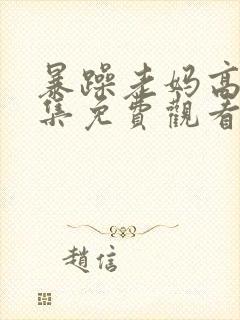 暴躁老妈高
集免費觀看
趙信